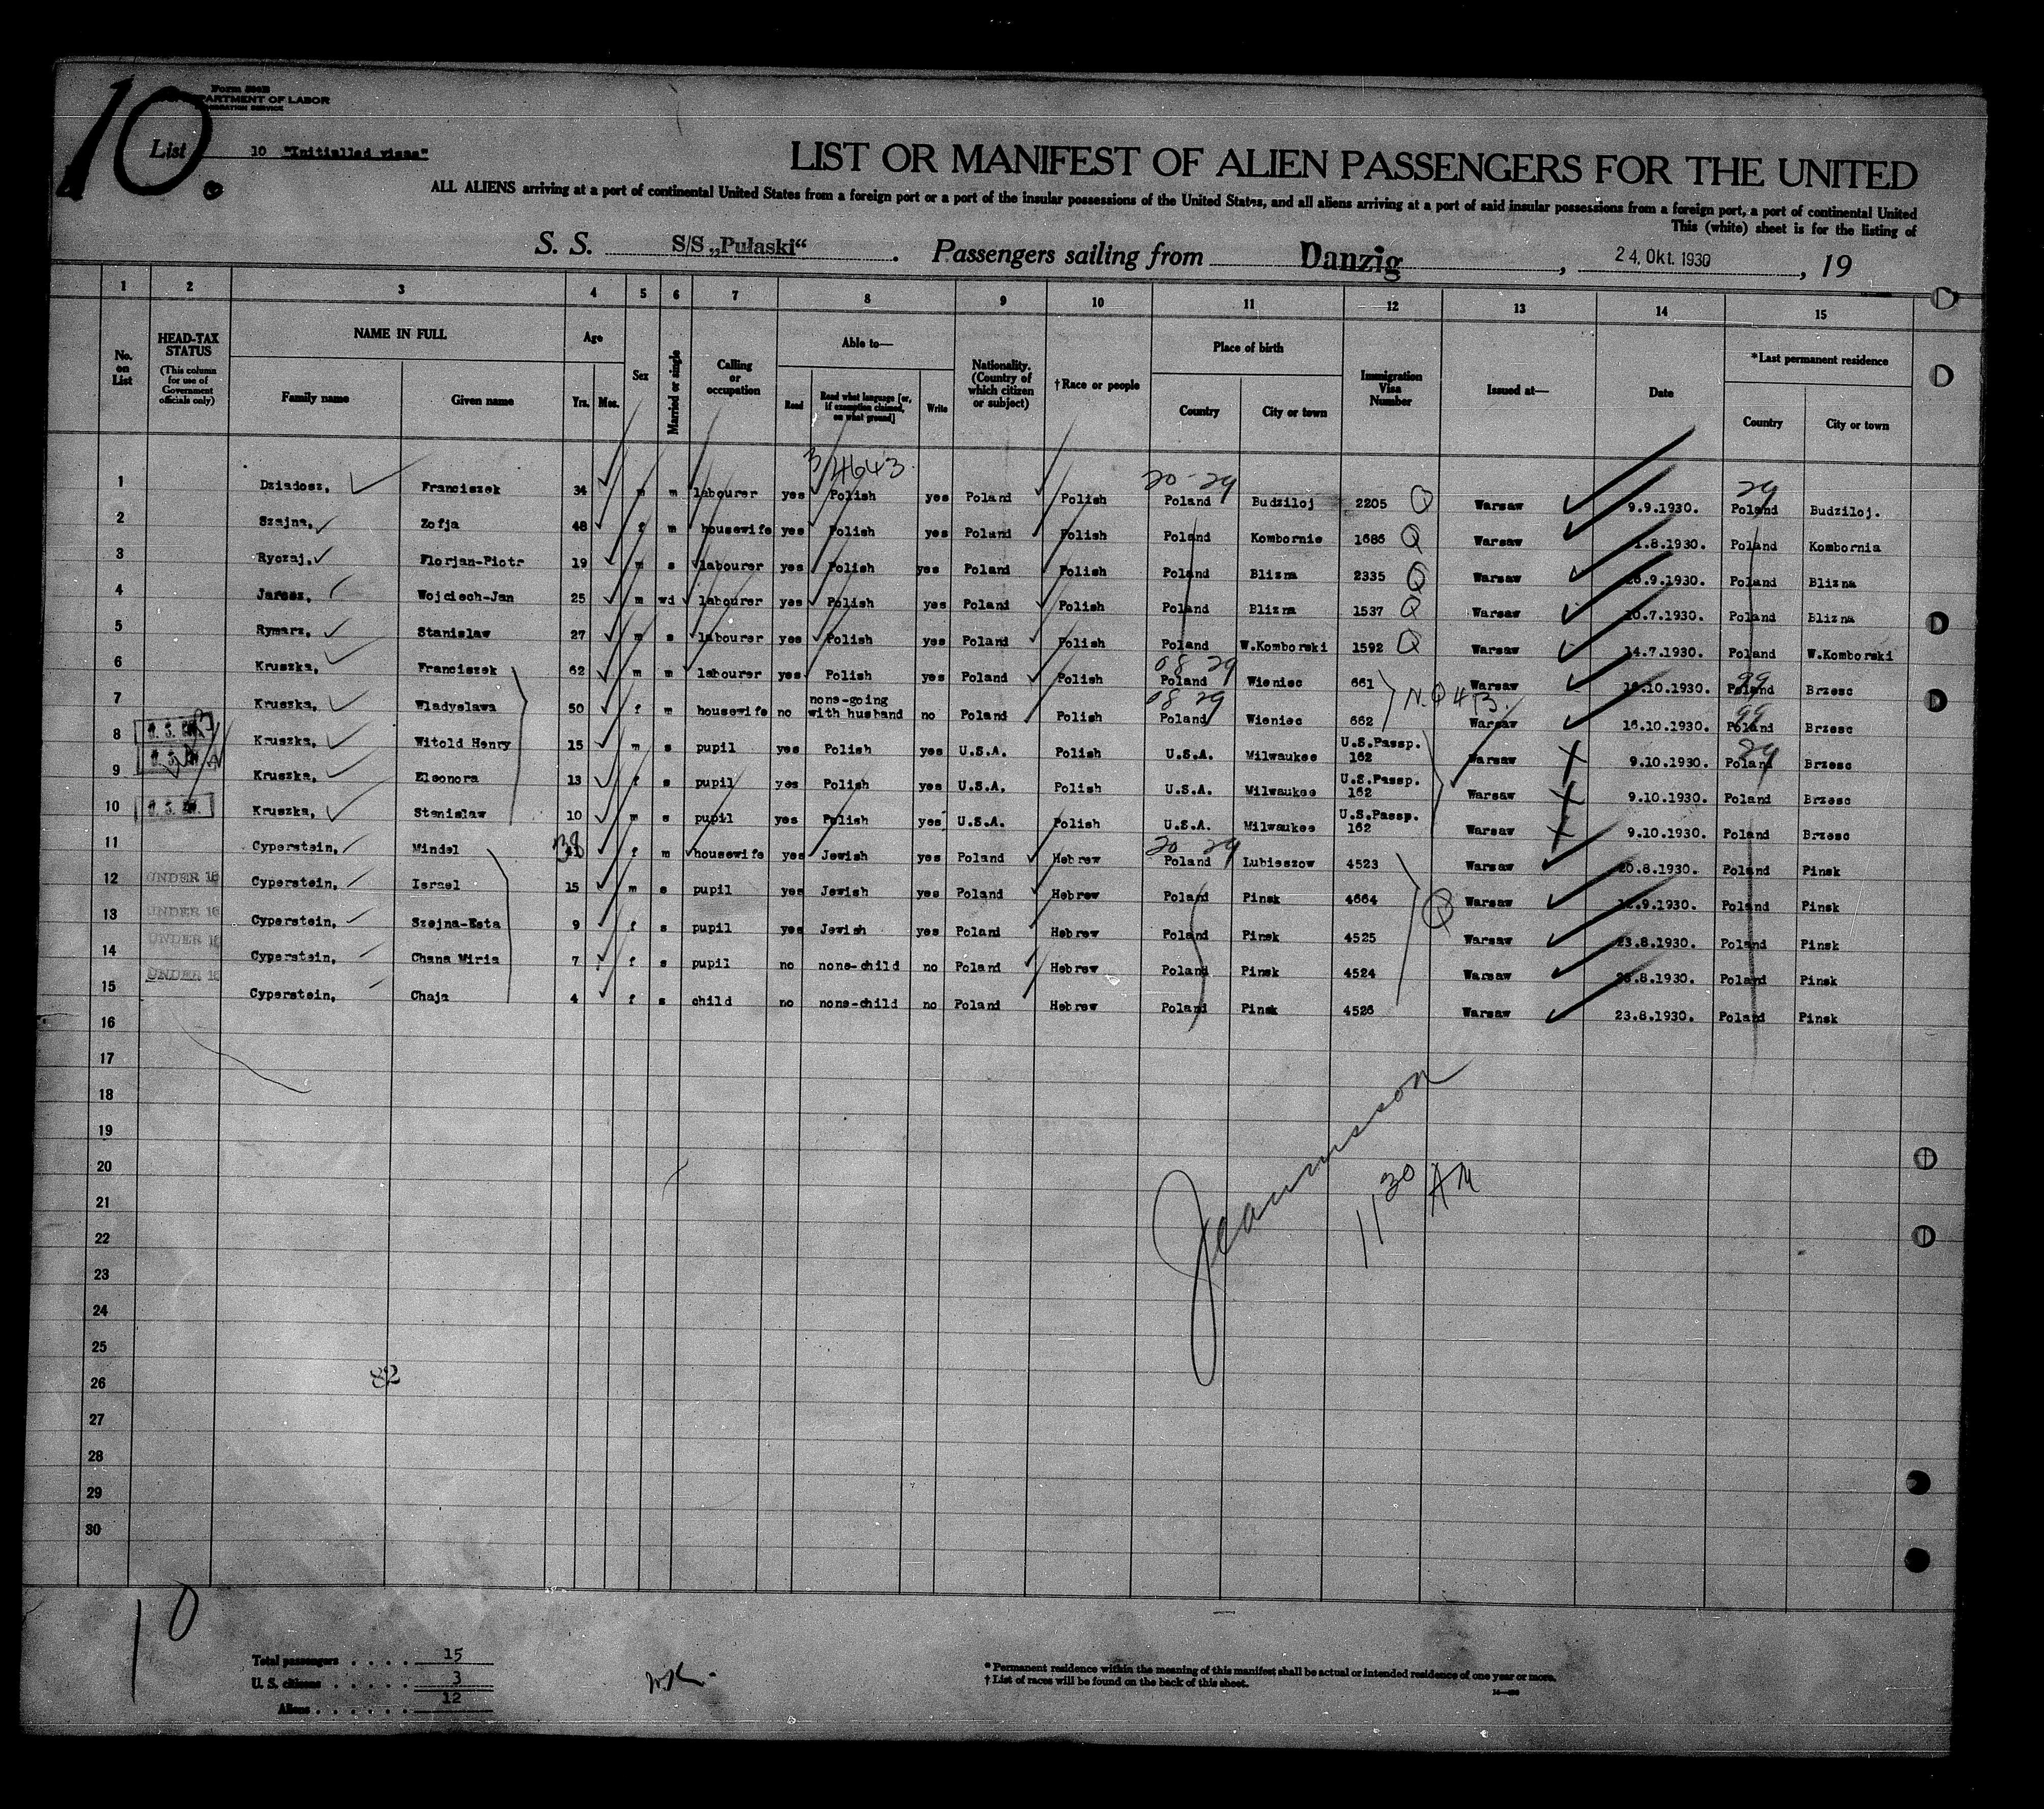 10.
Form 500B
DEPARTMENT OF LABOR
IMMIGRATION SERVICE
List 10 "Initialled visas"
LIST OR MANIFEST OF ALIEN PASSENGERS FOR THE UNITED
ALL ALIENS arriving at a port of continental United States from a foreign port or a port of the insular possessions of the United States, and all aliens arriving at a port of said insular possessions from a foreign port, a port of continental United
This (white) sheet is for the listing of
S. S. S/S „Pułaski“ . Passengers sailing from Danzig , 24. Okt. 1930 , 19
1 2 3 4 5 6 7 8 9 10 11 12 13 14 15
No. on List HEAD-TAX STATUS (This column for use of Government officials only) NAME IN FULL Family name Given name Age Yrs. Mos. Sex Married or single Calling or occupation Able to— Read Read what language [or, if exemption claimed, on what ground] Write Nationality. (Country of which citizen or subject) † Race or people Place of birth Country City or town Immigration Visa Number Issued at— Date *Last permanent residence Country City or town
3/4643. 20-29 29
1 Dziadosz, Franciszek 34 m m labourer yes Polish yes Poland Polish Poland Budziloj 2205 Q Warsaw 9.9.1930. Poland Budziloj.
2 Szajna, Zofja 48 f m housewife yes Polish yes Poland Polish Poland Kombornie 1686 Q Warsaw 1.8.1930. Poland Kombornia
3 Ryczaj, Florjan-Piotr 19 m s labourer yes Polish yes Poland Polish Poland Blizna 2335 Q Warsaw .9.1930. Poland Blizna
4 Jarosz, Wojciech-Jan 25 m wd labourer yes Polish yes Poland Polish Poland Blizna 1537 Q Warsaw 10.7.1930. Poland Blizna
5 Rymarz, Stanislaw 27 m s labourer yes Polish yes Poland Polish Poland W.Komborski 1592 Q Warsaw 14.7.1930. Poland W.Komborski
08 29 99
6 Kruszka, Franciszek 62 m m labourer yes Polish yes Poland Polish Poland Wieniec 661 Warsaw 16.10.1930. Poland Brzesc
N.Q 4 B. 08 29 99
7 Kruszka, Wladyslawa 50 f m housewife no none-going with husband no Poland Polish Poland Wieniec 662 Warsaw 16.10.1930. Poland Brzesc
8 Kruszka, Witold Henry 15 m s pupil yes Polish yes U.S.A. Polish U.S.A. Milwaukee U.S.Passp. 162 Warsaw 9.10.1930. Poland Brzesc
9 Kruszka, Eleonora 13 f s pupil yes Polish yes U.S.A. Polish U.S.A. Milwaukee U.S.Passp. 162 Warsaw 9.10.1930. Poland Brzesc
10 Kruszka, Stanislaw 10 m s pupil yes Polish yes U.S.A. Polish U.S.A. Milwaukee U.S.Passp. 162 Warsaw 9.10.1930. Poland Brzesc
20 29
11 Cyperstein, Mindel 38 f m housewife yes Jewish yes Poland Hebrew Poland Lubieszow 4523 Warsaw 20.8.1930. Poland Pinsk
12 UNDER 16 Cyperstein, Israel 15 m s pupil yes Jewish yes Poland Hebrew Poland Pinsk 4664 Q Warsaw 12.9.1930. Poland Pinsk
13 UNDER 16 Cyperstein, Szejna-Esta 9 f s pupil yes Jewish yes Poland Hebrew Poland Pinsk 4525 Warsaw 23.8.1930. Poland Pinsk
14 UNDER 16 Cyperstein, Chana Miria 7 f s pupil no none-child no Poland Hebrew Poland Pinsk 4524 Warsaw 23.8.1930. Poland Pinsk
15 UNDER 16 Cyperstein, Chaja 4 f s child no none-child no Poland Hebrew Poland Pinsk 4526 Warsaw 23.8.1930. Poland Pinsk
16
17
18
19
20
11 30 AM
21
22
23
24
25
82
26
27
28
29
30
10
Total passengers . . . . 15
U. S. citizens . . . . . 3
Aliens . . . . . . 12
* Permanent residence within the meaning of this manifest shall be actual or intended residence of one year or more.
† List of races will be found on the back of this sheet.